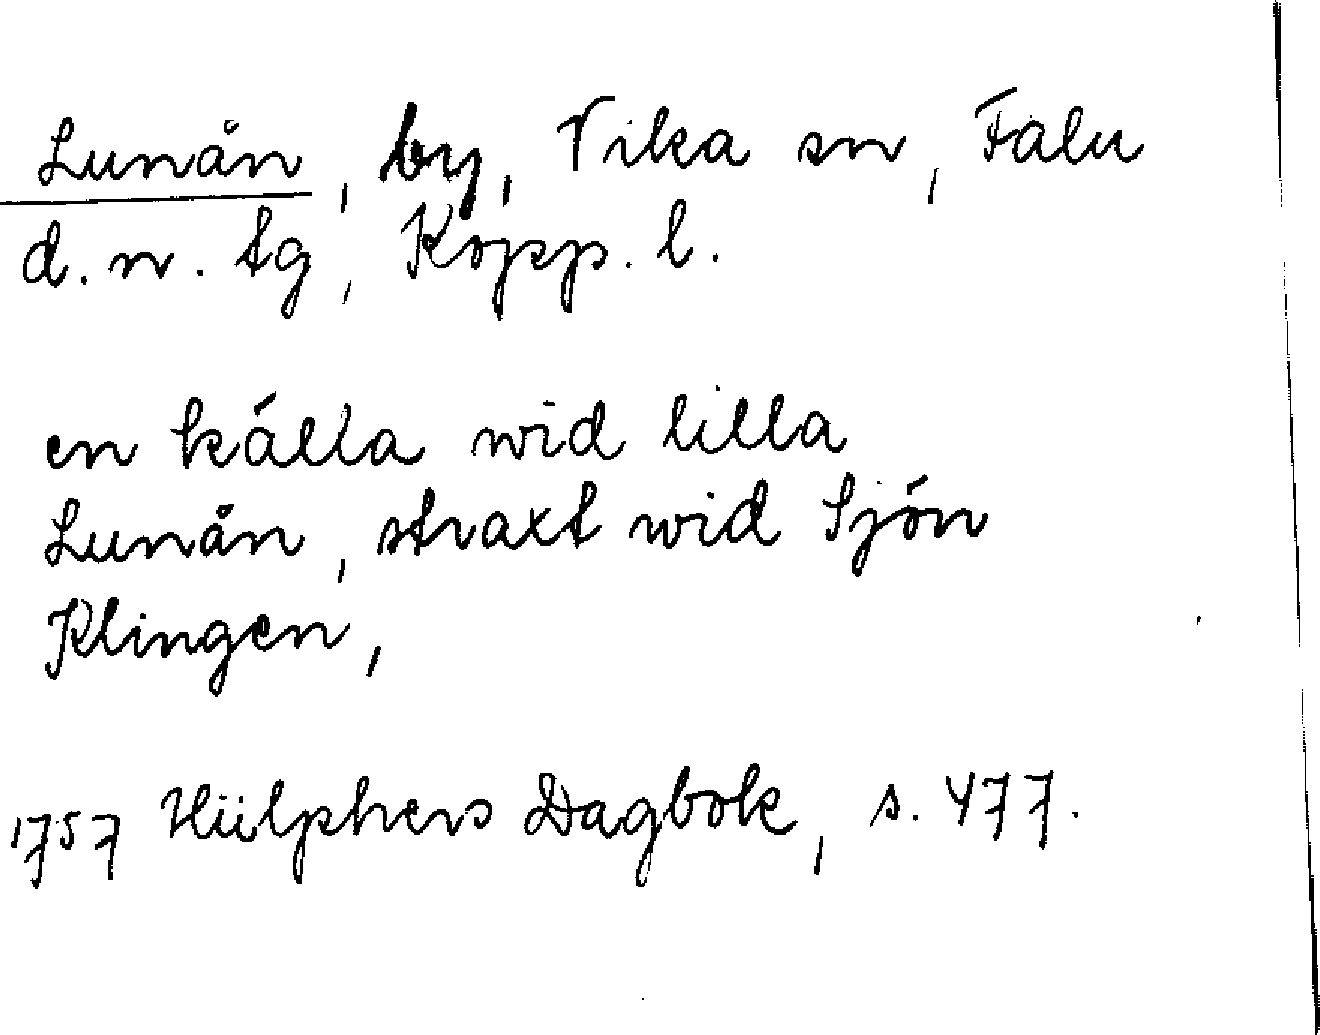 Lunån, by, Vika sn, Falu
d. n. tg, Kopp. l.
en källa wid lilla
Lunån, straxt wid Sjön
Klingen,
1757 Hülphers Dagbok, s. 477.